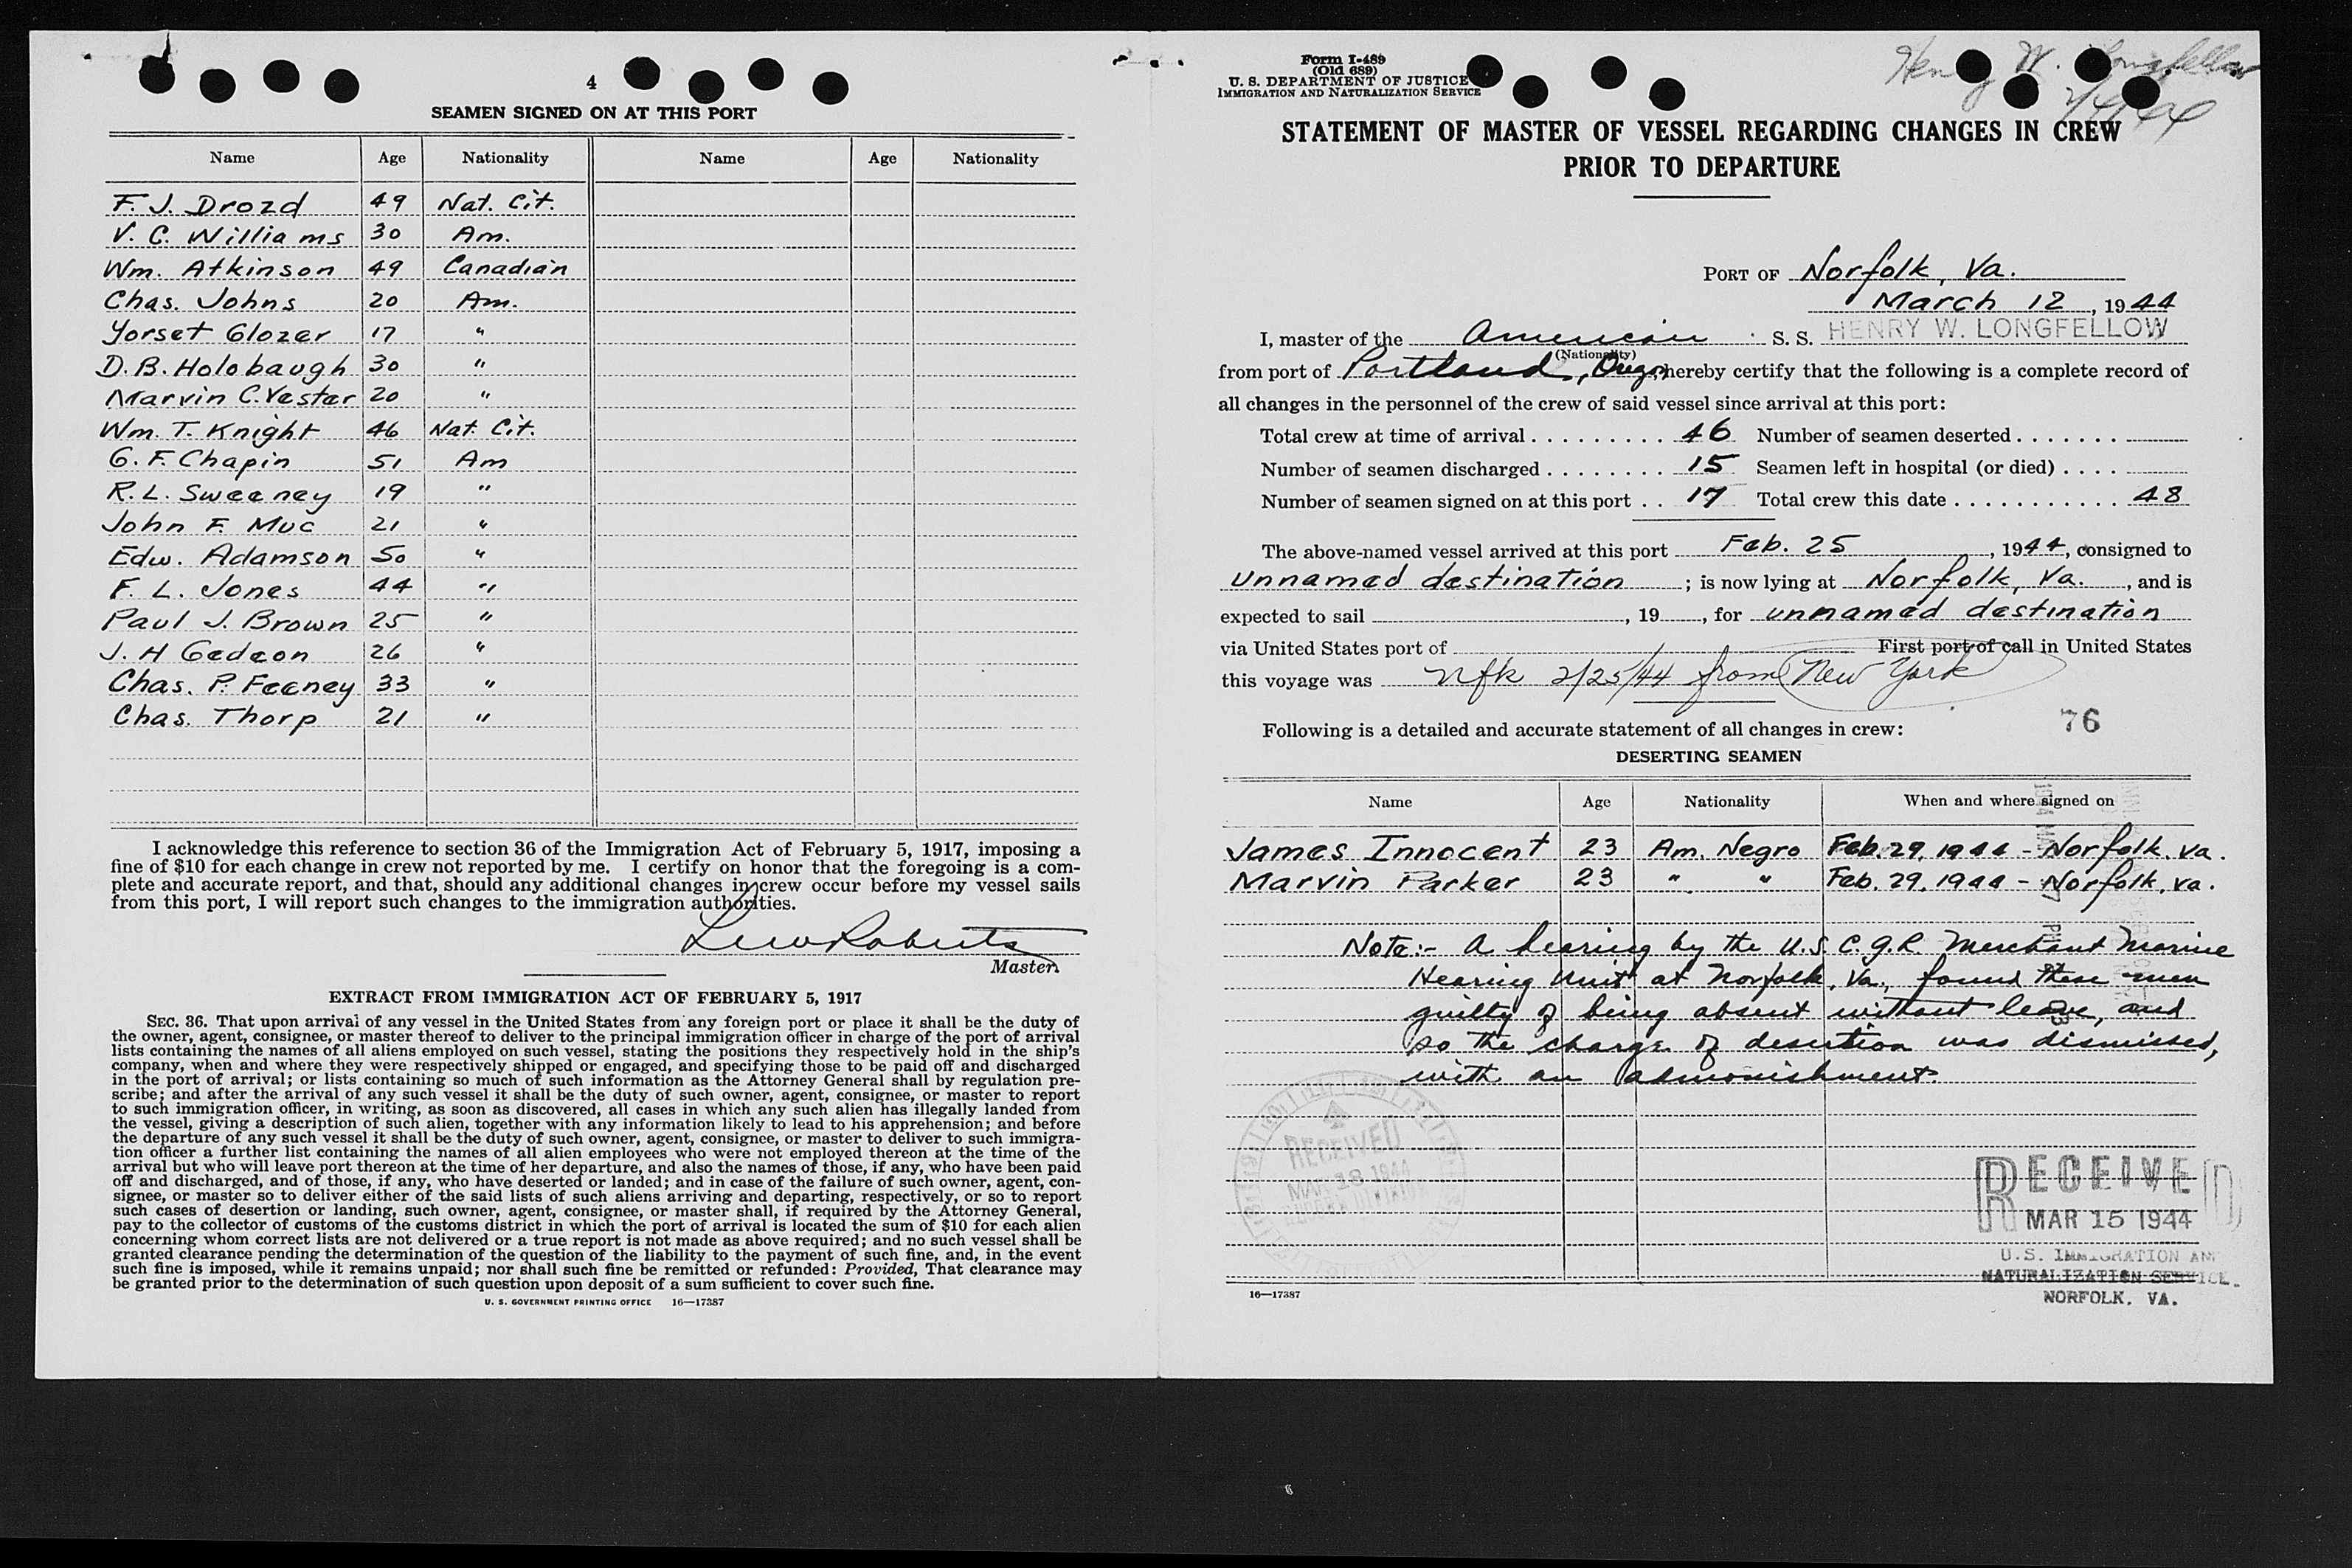 4
SEAMEN SIGNED ON AT THIS PORT
Name Age Nationality Name Age Nationality
F. J. Drozd 49 Nat. Cit.
V. C. Williams 30 Am.
Wm. Atkinson 49 Canadian
Chas. Johns 20 Am.
Yorset Glozer 17 "
D. B. Holobaugh 30 "
Marvin C. Vester 20 "
Wm. T. Knight 46 Nat. Cit.
G. F. Chapin 51 Am
R. L. Sweeney 19 "
John F. Muc 21 "
Edw. Adamson 50 "
F. L. Jones 44 "
Paul J. Brown 25 "
J. H Gedeon 26 "
Chas. P. Feeney 33 "
Chas. Thorp 21 "
I acknowledge this reference to section 36 of the Immigration Act of February 5, 1917, imposing a
fine of $10 for each change in crew not reported by me. I certify on honor that the foregoing is a com-
plete and accurate report, and that, should any additional changes in crew occur before my vessel sails
from this port, I will report such changes to the immigration authorities.
Lew Roberts
Master.
EXTRACT FROM IMMIGRATION ACT OF FEBRUARY 5, 1917
SEC. 36. That upon arrival of any vessel in the United States from any foreign port or place it shall be the duty of
the owner, agent, consignee, or master thereof to deliver to the principal immigration officer in charge of the port of arrival
lists containing the names of all aliens employed on such vessel, stating the positions they respectively hold in the ship's
company, when and where they were respectively shipped or engaged, and specifying those to be paid off and discharged
in the port of arrival; or lists containing so much of such information as the Attorney General shall by regulation pre-
scribe; and after the arrival of any such vessel it shall be the duty of such owner, agent, consignee, or master to report
to such immigration officer, in writing, as soon as discovered, all cases in which any such alien has illegally landed from
the vessel, giving a description of such alien, together with any information likely to lead to his apprehension; and before
the departure of any such vessel it shall be the duty of such owner, agent, consignee, or master to deliver to such immigra-
tion officer a further list containing the names of all alien employees who were not employed thereon at the time of the
arrival but who will leave port thereon at the time of her departure, and also the names of those, if any, who have been paid
off and discharged, and of those, if any, who have deserted or landed; and in case of the failure of such owner, agent, con-
signee, or master so to deliver either of the said lists of such aliens arriving and departing, respectively, or so to report
such cases of desertion or landing, such owner, agent, consignee, or master shall, if required by the Attorney General,
pay to the collector of customs of the customs district in which the port of arrival is located the sum of $10 for each alien
concerning whom correct lists are not delivered or a true report is not made as above required; and no such vessel shall be
granted clearance pending the determination of the question of the liability to the payment of such fine, and, in the event
such fine is imposed, while it remains unpaid; nor shall such fine be remitted or refunded: Provided, That clearance may
be granted prior to the determination of such question upon deposit of a sum sufficient to cover such fine.
U. S. GOVERNMENT PRINTING OFFICE 16—17387
Form I-489
(Old 689)
U. S. DEPARTMENT OF JUSTICE
IMMIGRATION AND NATURALIZATION SERVICE
Henry W. Longfellow
STATEMENT OF MASTER OF VESSEL REGARDING CHANGES IN CREW
PRIOR TO DEPARTURE
PORT OF Norfolk, Va.
March 12, 1944
I, master of the American S. S. HENRY W. LONGFELLOW
(Nationality)
from port of Portland, Oregon, hereby certify that the following is a complete record of
all changes in the personnel of the crew of said vessel since arrival at this port:
Total crew at time of arrival 46 Number of seamen deserted
Number of seamen discharged 15 Seamen left in hospital (or died)
Number of seamen signed on at this port 17 Total crew this date 48
The above-named vessel arrived at this port Feb. 25, 1944, consigned to
unnamed destination; is now lying at Norfolk, Va., and is
expected to sail , 19 , for unnamed destination
via United States port of First port of call in United States
this voyage was Nfk 2/25/44 from New York
Following is a detailed and accurate statement of all changes in crew: 76
DESERTING SEAMEN
Name Age Nationality When and where signed on
James Innocent 23 Am. Negro Feb. 29, 1944 - Norfolk, Va.
Marvin Parker 23 " " Feb. 29, 1944 - Norfolk, Va.
Note:- A hearing by the U.S. C.G.R. Merchant Marine
Hearing Unit at Norfolk, Va., found these men
guilty of being absent without leave, and
so the charge of desertion was dismissed,
with an admonishment.
RECEIVED
MAR 18 1944
RECEIVED
MAR 15 1944
U.S. IMMIGRATION AND
NATURALIZATION SERVICE.
NORFOLK, VA.
16—17387